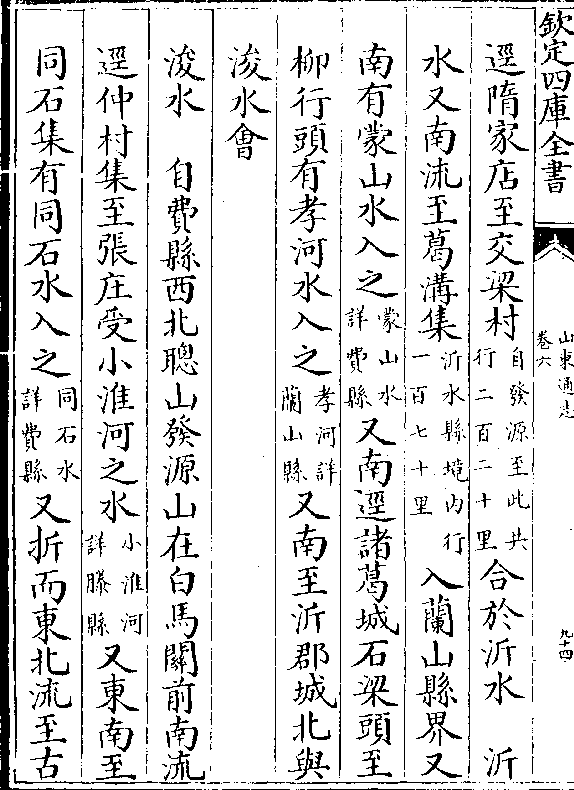 欽定四庫全書
山東通志
卷六
九十四
逕隋家店至交梁村自發源至此共行二百二十里合於沂水 沂
水又南流至葛溝集沂水縣境內行一百七十里入蘭山縣界又
南有蒙山水入之蒙山水詳費縣又南逕諸葛城石梁頭至
柳行頭有孝河水入之孝河詳蘭山縣又南至沂郡城北與
浚水會
浚水 自費縣西北聰山發源山在白馬關前南流
逕仲村集至張庄受小淮河之水小淮河詳滕縣又東南至
同石集有同石水入之同石水詳費縣又折而東北流至古